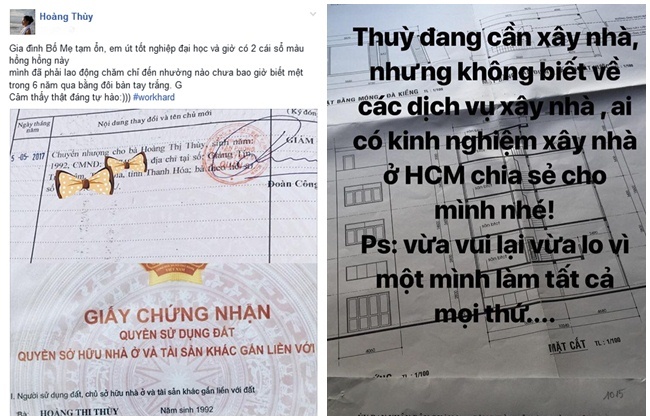 Hoàng Thùy
Gia đình Bố Mẹ tạm ổn, em út tốt nghiệp đại học và giờ có 2 cái sổ màu
hồng hồng này
mình đã phải lao động chăm chỉ đến nhường nào chưa bao giờ biết mệt
trong 6 năm qua bằng đôi bàn tay trắng. G
Cảm thấy thật đáng tự hào:))) #workhard
Ngày tháng
năm
Nội dung thay đổi và tên chủ mới
5-05-2017
Chuyển nhượng cho bà Hoàng Thị Thùy, sinh năm:
1992, CMND:
địa chỉ tại số:
tỉnh Thanh Hóa;
GIÁM
Đoàn Công
GIẤY CHỨNG NHẬN
QUYỀN SỬ DỤNG ĐẤT
QUYỀN SỞ HỮU NHÀ Ở VÀ TÀI SẢN KHÁC GẮN LIỀN VỚI
I. Người sử dụng đất, chủ sở hữu nhà ở và tài sản khác gắn liền với đất
Bà: HOÀNG THỊ THÙY Năm sinh 1992
Thuỳ đang cần xây nhà,
nhưng không biết về
các dịch vụ xây nhà , ai
có kinh nghiệm xây nhà
ở HCM chia sẻ cho
mình nhé!
Ps: vừa vui lại vừa lo vì
một mình làm tất cả
mọi thứ....
MẶT BẰNG MÓNG ĐÀ KIỀNG
MẶT CẮT TL : 1/100